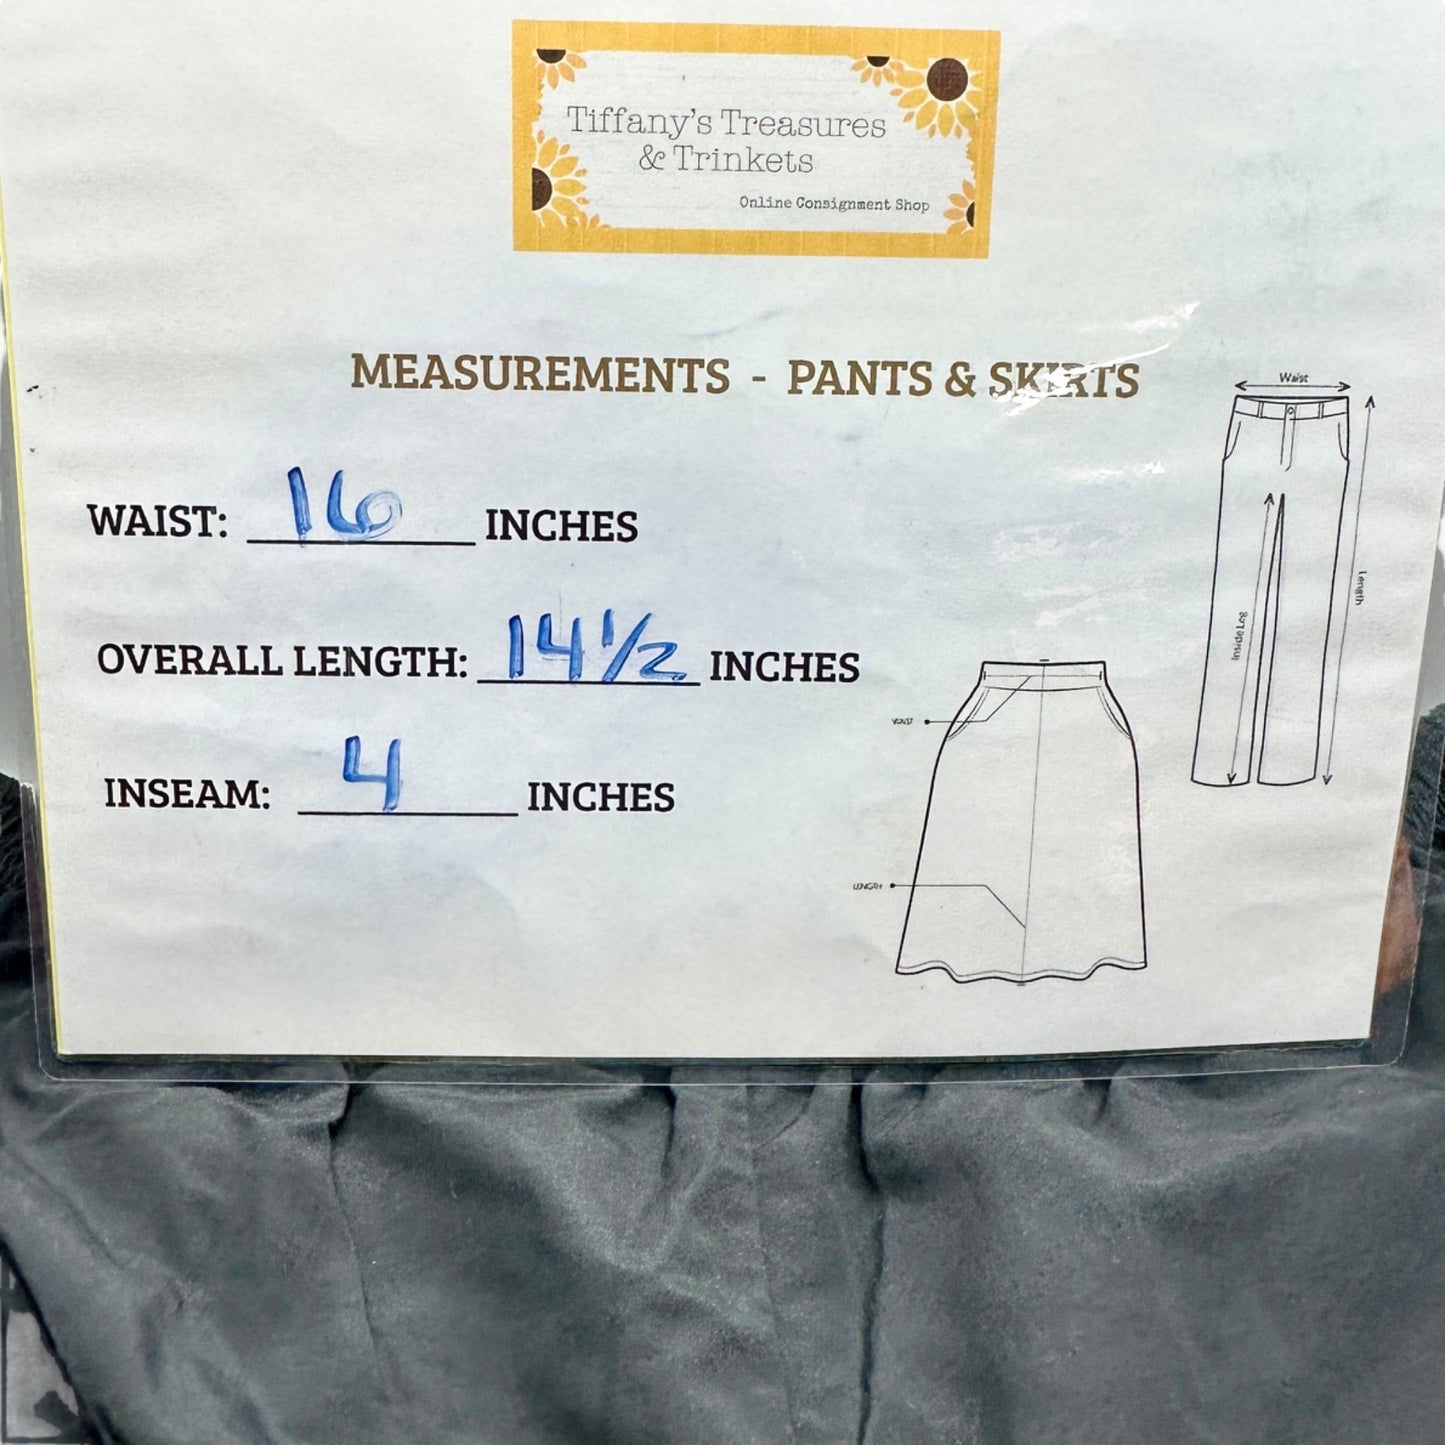 Tiffany's Treasures
& Trinkets
Online Consignment Shop
MEASUREMENTS - PANTS & SKIRTS
Waist
WAIST: 16 INCHES
Length
Inside Leg
OVERALL LENGTH: 14 1/2 INCHES
WAIST
INSEAM: 4 INCHES
LENGTH